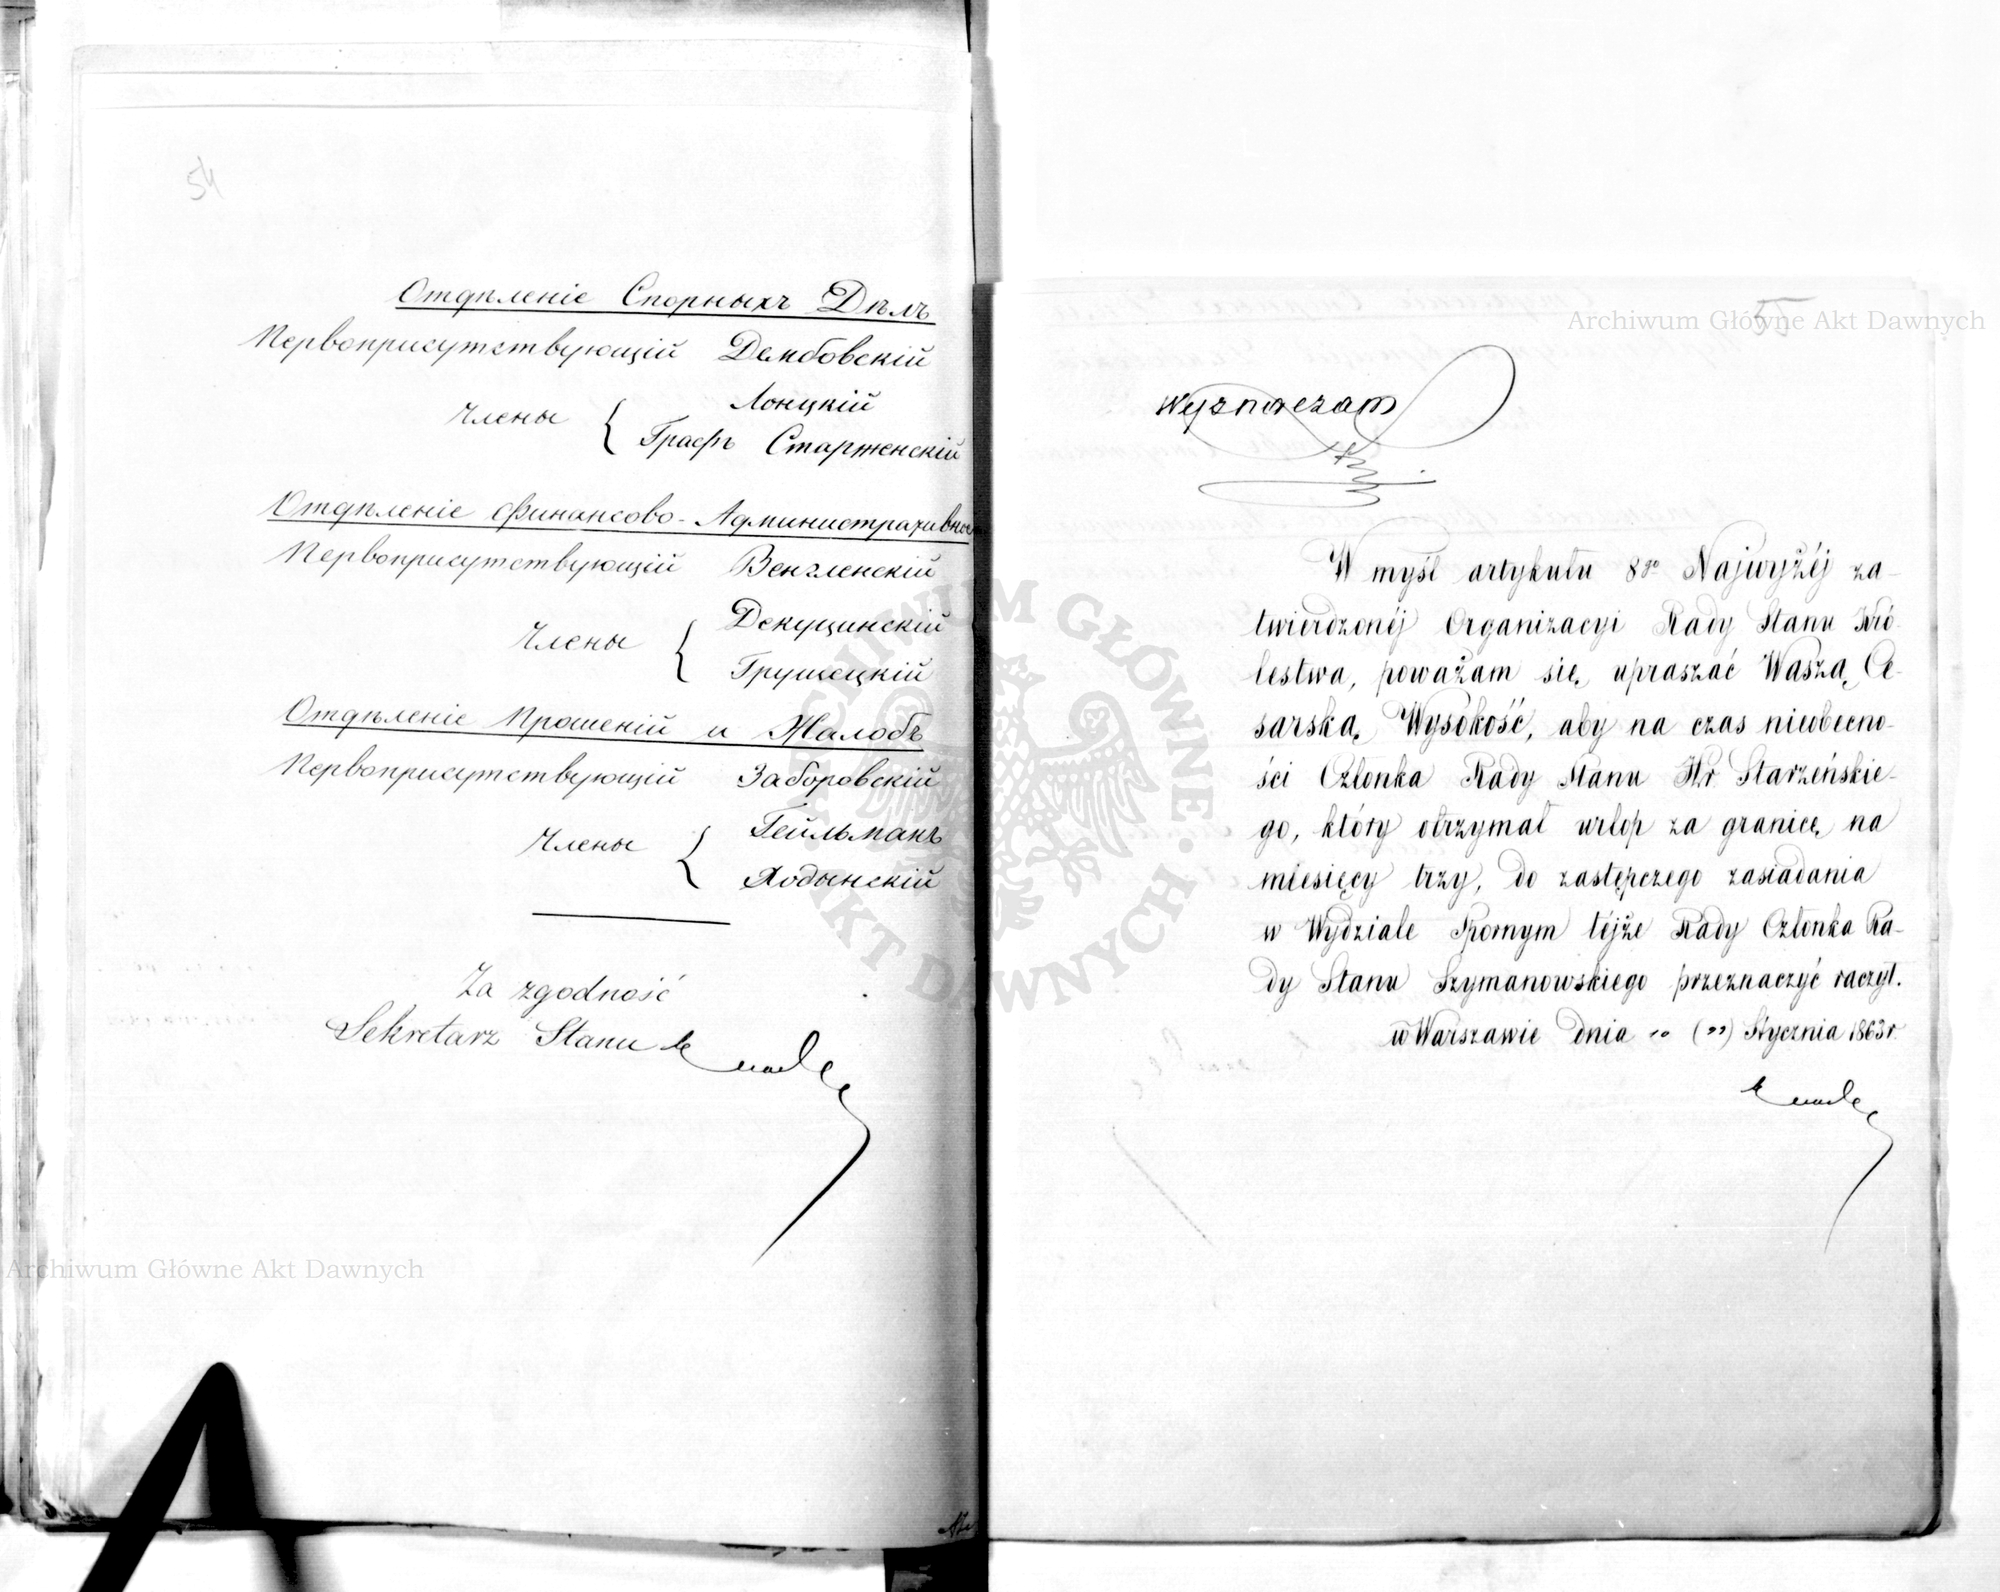 54
Отдѣленіе Спорныхъ Дѣлъ
Первоприсутствующій Дембовскій
Члены { Лонцкій
Графъ Старженскій
Отдѣленіе Финансово-Административное
Первоприсутствующій Венгленскій
Члены { Декуцинскій
Грушецкій
Отдѣленіе Прошеній и Жалобъ
Первоприсутствующій Заборовскій
Члены { Гейльманъ
Ходынскій
Za zgodność
Sekretarz Stanu
Archiwum Główne Akt Dawnych
55
Archiwum Główne Akt Dawnych
Wyznaczam
W myśl artykułu 8go Najwyżéj za-
twierdzonéj Organizacyi Rady Stanu Kró-
lestwa, poważam się, upraszać Waszą Ce-
sarską Wysokość, aby na czas nieobecno-
ści Członka Rady Stanu Hr. Starzeńskie-
go, który otrzymał urlop za granicę na
miesięcy trzy, do zastępczego zasiadania
w Wydziale Spornym tejże Rady Członka Ra-
dy Stanu Szymanowskiego przeznaczyć raczył.
w Warszawie dnia 10 (22) Stycznia 1863 r.
ARCHIWUM GŁÓWNE · AKT DAWNYCH ·